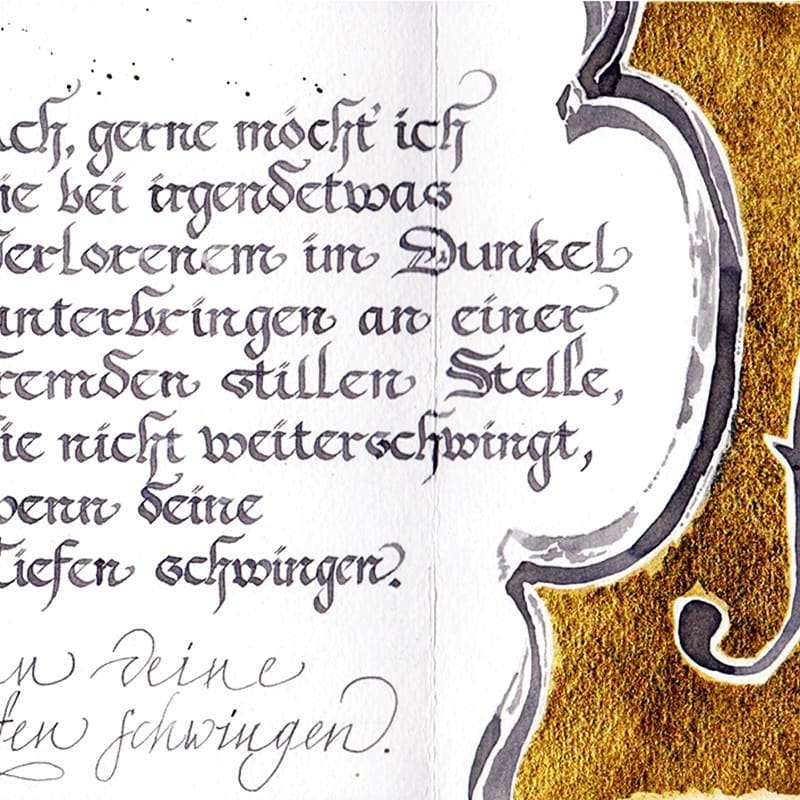 Ach, gerne möcht' ich
ie bei irgendetwas
Verlorenem im Dunkel
unterbringen an einer
fremden stillen Stelle,
ie nicht weiterschwingt,
wenn deine
Tiefen schwingen.
nn deine
fen schwingen.